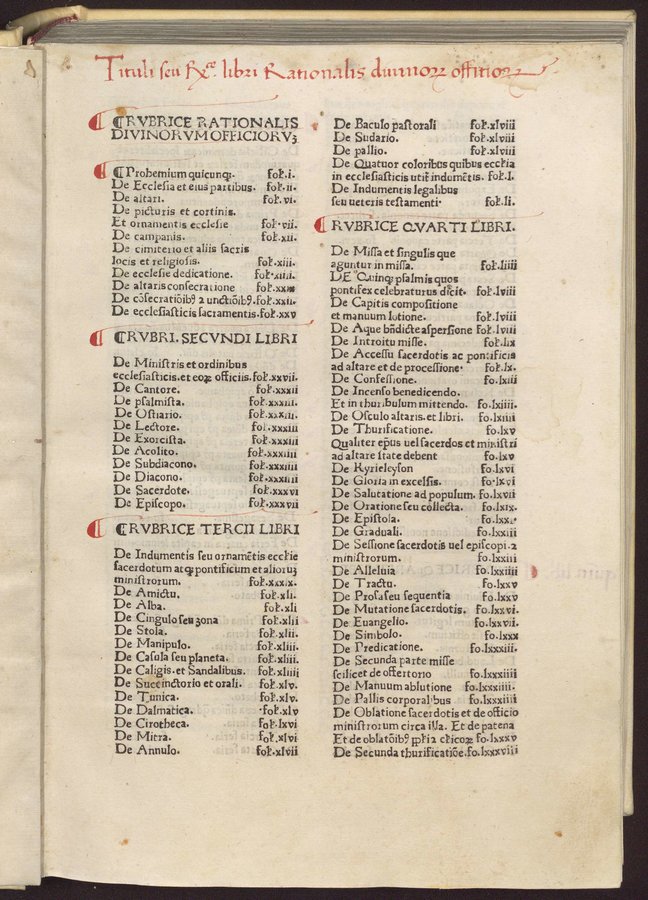 Tituli seu libri Rationalis diuinoꝝ offitioꝝ
⸿RVBRICE RATIONALIS
DIVINORVM OFFICIORVꝫ
⸿Prohemium quicunqꝫ. fol.i.
De Ecclesia et eius partibus. fol.ii.
De altari. fol.vi.
De picturis et cortinis.
Et ornamentis ecclesie fol·vii.
De campanis. fol.xii.
De cimiterio et aliis sacris
locis et religiosis. fol.xiii.
De ecclesie dedicatione. fol·xiiii.
De altaris consecratione fol.xxix
De cōsecratiōibꝰ ⁊ unctiōibꝰ. fol.xxii.
De ecclesiasticis sacramentis. fol.xxv
⸿RVBRI. SECVNDI LIBRI
De Ministris et ordinibus
ecclesiasticis. et eoꝝ officiis. fol.xxvii.
De Cantore. fol.xxxii
De psalmista. fol.xxxiii.
De Ostiario. fol.xxxiii.
De Lectore. fol.xxxiii
De Exorcista. fol.xxxiii
De Acolito. fol.xxxiiii
De Subdiacono. fol.xxxiiii
De Diacono. fol.xxxiiii
De Sacerdote. fol.xxxvi
De Episcopo. fol.xxxvii
⸿RVBRICE TERCII LIBRI
De Indumentis seu ornamētis ecclīe
sacerdotum atqꝫ pontificum et alioruꝫ
ministrorum. fol.xxxix.
De Amictu. fol.xli.
De Alba. fol.xli
De Cingulo seu zona fol.xlii
De Stola. fol.xliii.
De Manipulo. fol.xliii.
De Casula seu planeta. fol.xliii.
De Caligis. et Sandalibus. fol.xliiii
De Succinctorio et orali. fol.xlv.
De Tunica. fol.xlv.
De Dalmatica. fol.xlv
De Cirotheca. fol.lxvi
De Mitra. fol.xlvi
De Annulo. fol.xlvii
De Baculo pastorali fol.xlviii
De Sudario. fol.xlviii
De pallio. fol.xlviii
De Quatuor coloribus quibus eccl̄ia
in ecclesiasticis utit̄ indumētis. fol.l.
De Indumentis legalibus
seu ueteris testamenti· fol.li.
RVBRICE QVARTI LIBRI.
De Missa et singulis que
aguntur in missa. fol.liiii
DE Quinqꝫ psalmis quos
pontifex celebraturus dicit. fol.lviii
De Capitis compositione
et manuum lotione. fol.lviii
De Aque bn̄dicte aspersione fol.lviii
De Introitu misse. fol.lix
De Accessu sacerdotis ac pontificis
ad altare et de processione· fol.lx.
De Confessione. fo.lxiii
De Incenso benedicendo.
Et in thuribulum mittendo. fo.lxiiii.
De Osculo altaris. et libri. fo.lxiiii
De Thurificatione. fo.lxv
Qualiter ep̄us uel sacerdos et ministri
ad altare state debent fo.lxv
De Kyrieleyson fo.lxvi
De Gloria in excelsis. fo·lxvi
De Salutatione ad populum. fo.lxvii
De Oratione seu collecta. fo.lxix.
De Epistola. fo.lxx.
De Graduali. fo.lxxiii.
De Sessione sacerdotis uel episcopi. ⁊
ministrorum. fo.lxxiii
De Alleluia fo.lxxiiii
De Tractu. fo.lxxv
De Prosa seu sequentia fo.lxxv
De Mutatione sacerdotis. fo.lxxvi.
De Euangelio. fo.lxxvii.
De Simbolo. fo.lxxx
De Predicatione. fo.lxxxiii.
De Secunda parte misse
scilicet de offertorio fo.lxxxiiii
De Manuum ablutione fo.lxxxiiii
De Pallis corporalibus fo.lxxxiiii
De Oblatione sacerdotis et de officio
ministrorum circa illa. Et de patena
Et de oblatōibꝰ fo.lxxxv
De Secunda thurificatiōe. fo.lxxxviii